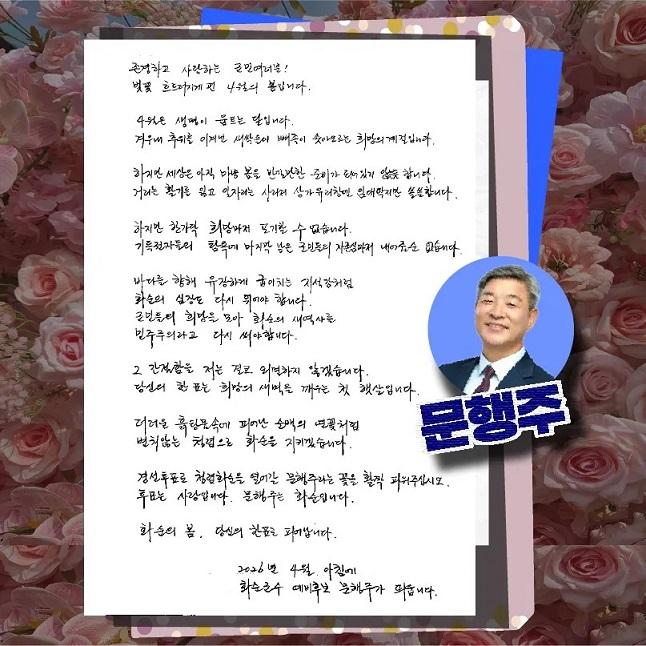 존경하고 사랑하는 군민여러분!
벚꽃 흐드러지게 핀 4월의 봄입니다.
4월은 생명이 움트는 달입니다.
겨우내 추위를 이겨낸 새싹들이 삐쭉이 솟아오르는 희망의 계절입니다.
하지만 세상은 아직 마음 놓을 만만한 순이가 되어있지 않습니다.
거리는 활기를 잃고 일자리는 사라져 상가유리창엔 임대딱지만 쓸쓸합니다.
하지만 한가닥 희망마저 포기할 수 없습니다.
기득권자들의 탐욕에 마지막 남은 군민들의 자존심마저 내어줄순 없습니다.
바다를 향해 유장하게 굽이치는 지석강처럼
화순의 심장도 다시 뛰어야 합니다.
군민들의 희망을 모아 화순의 새역사를
민주주의라고 다시 써야합니다.
그 간절함을 저는 결코 외면하지 않겠습니다.
당신의 한 표는 희망의 새벽을 깨우는 첫 햇살입니다.
더러운 흙탕물속에 피어난 순백의 연꽃처럼
변치않는 청렴으로 화순을 지키겠습니다.
경선투표로 청렴화순을 열어갈 문행주라는 꽃을 활짝 피워주십시오.
투표는 사랑입니다. 문행주는 화순입니다.
화순의 봄, 당신의 한표로 피어납니다.
2026년 4월 아침에
화순군수 예비후보 문행주가 띄웁니다.
문행주